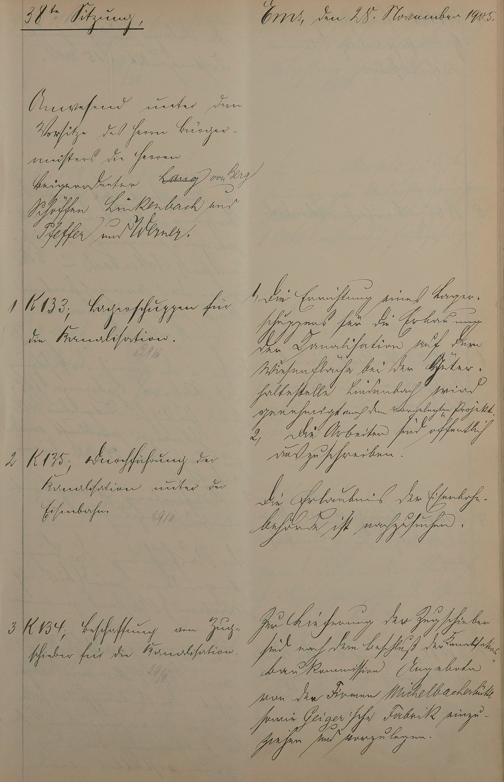 38te Sitzung,
Ems, den 28. November 1905.
Anwesend unter dem
Vorsitze des Herrn Bürger-
meisters die Herren
Beigeordneter Lang von Berg
Schöffen Linkenbach und
Pfeffer und Werner.
1 K 133, Lagerschuppen für
die Kanalisation.
1, Die Errichtung eines Lager-
schuppens für die Erbauung
der Kanalisation auf dem
Wiesenfläche bei der Güter-
haltestelle Lindenbach wird
genehmigt nach dem vorgelegten Projekt.
2, Die Arbeiten sind öffentlich
auszuschreiben.
2 K 135, Durchführung der
Kanalisation unter der
Eisenbahn.
Die Erlaubnis der Eisenbahn-
behörde ist nachzusuchen.
3 K 134, Beschaffung von Zug-
schieber für die Kanalisation
Zur Lieferung der Zugschieber
sind nach dem Beschluß der Kanalisations
baukommission Angebote
von den Firmen Michelbacherhütte
sowie Geiger'sche Fabrik einzu-
ziehen und vorzulegen.